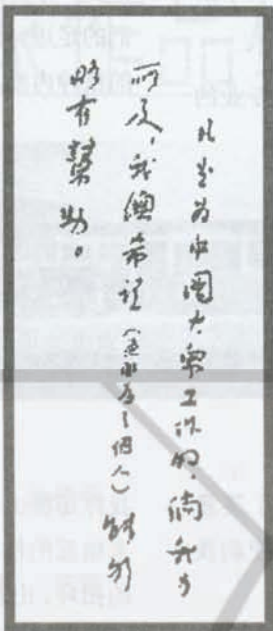 凡是为中國大衆工作的，倘我力
所及，我總希望（並非为了個人）能夠
略有幫助。